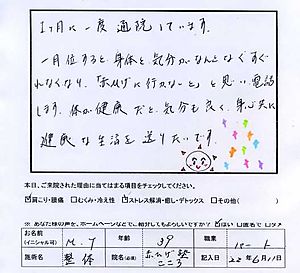 1ヶ月に一度通院しています。
一月位すると身体と気分がなんとなくすぐ
れなくなり、「ホムげに行かないと」と思い電話
します。体が健康だと気分も良く、身心共に
健康な生活を送りたいです。
本日、ご来院された理由に当てはまる項目をチェックしてください。
☑肩こり・腰痛 □むくみ・冷え性 □ストレス解消・癒し・デトックス □その他( )
※ あなた様の声を、ホームページなどで、紹介してもよろしいですか? ☑はい □匿名で
お名前 (イニシャル可) M.Y 年齢 39 職業 パート
施術名 整体 院名(必須) こころ 記入日 22年6月11日